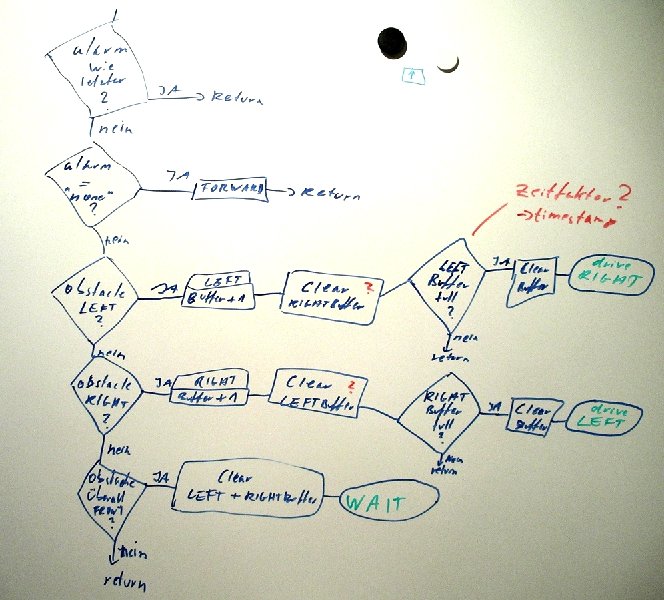 alarm
wie
letzter
?
JA
Return
nein
alarm
=
"none"
?
JA
FORWARD
Return
nein
Zeitfaktor?
→timestamp
obstacle
LEFT
?
JA
LEFT
Buffer+1
Clear ?
RIGHTBuffer
LEFT
Buffer
full
?
JA
Clear
Buffer
drive
RIGHT
nein
return
nein
obstacle
RIGHT
?
JA
RIGHT
Buffer+1
Clear ?
LEFTBuffer
RIGHT
Buffer
full
?
JA
Clear
Buffer
drive
LEFT
nein
return
nein
obstacle
überall
FRONT
?
JA
Clear
LEFT + RIGHTBuffer
WAIT
nein
return